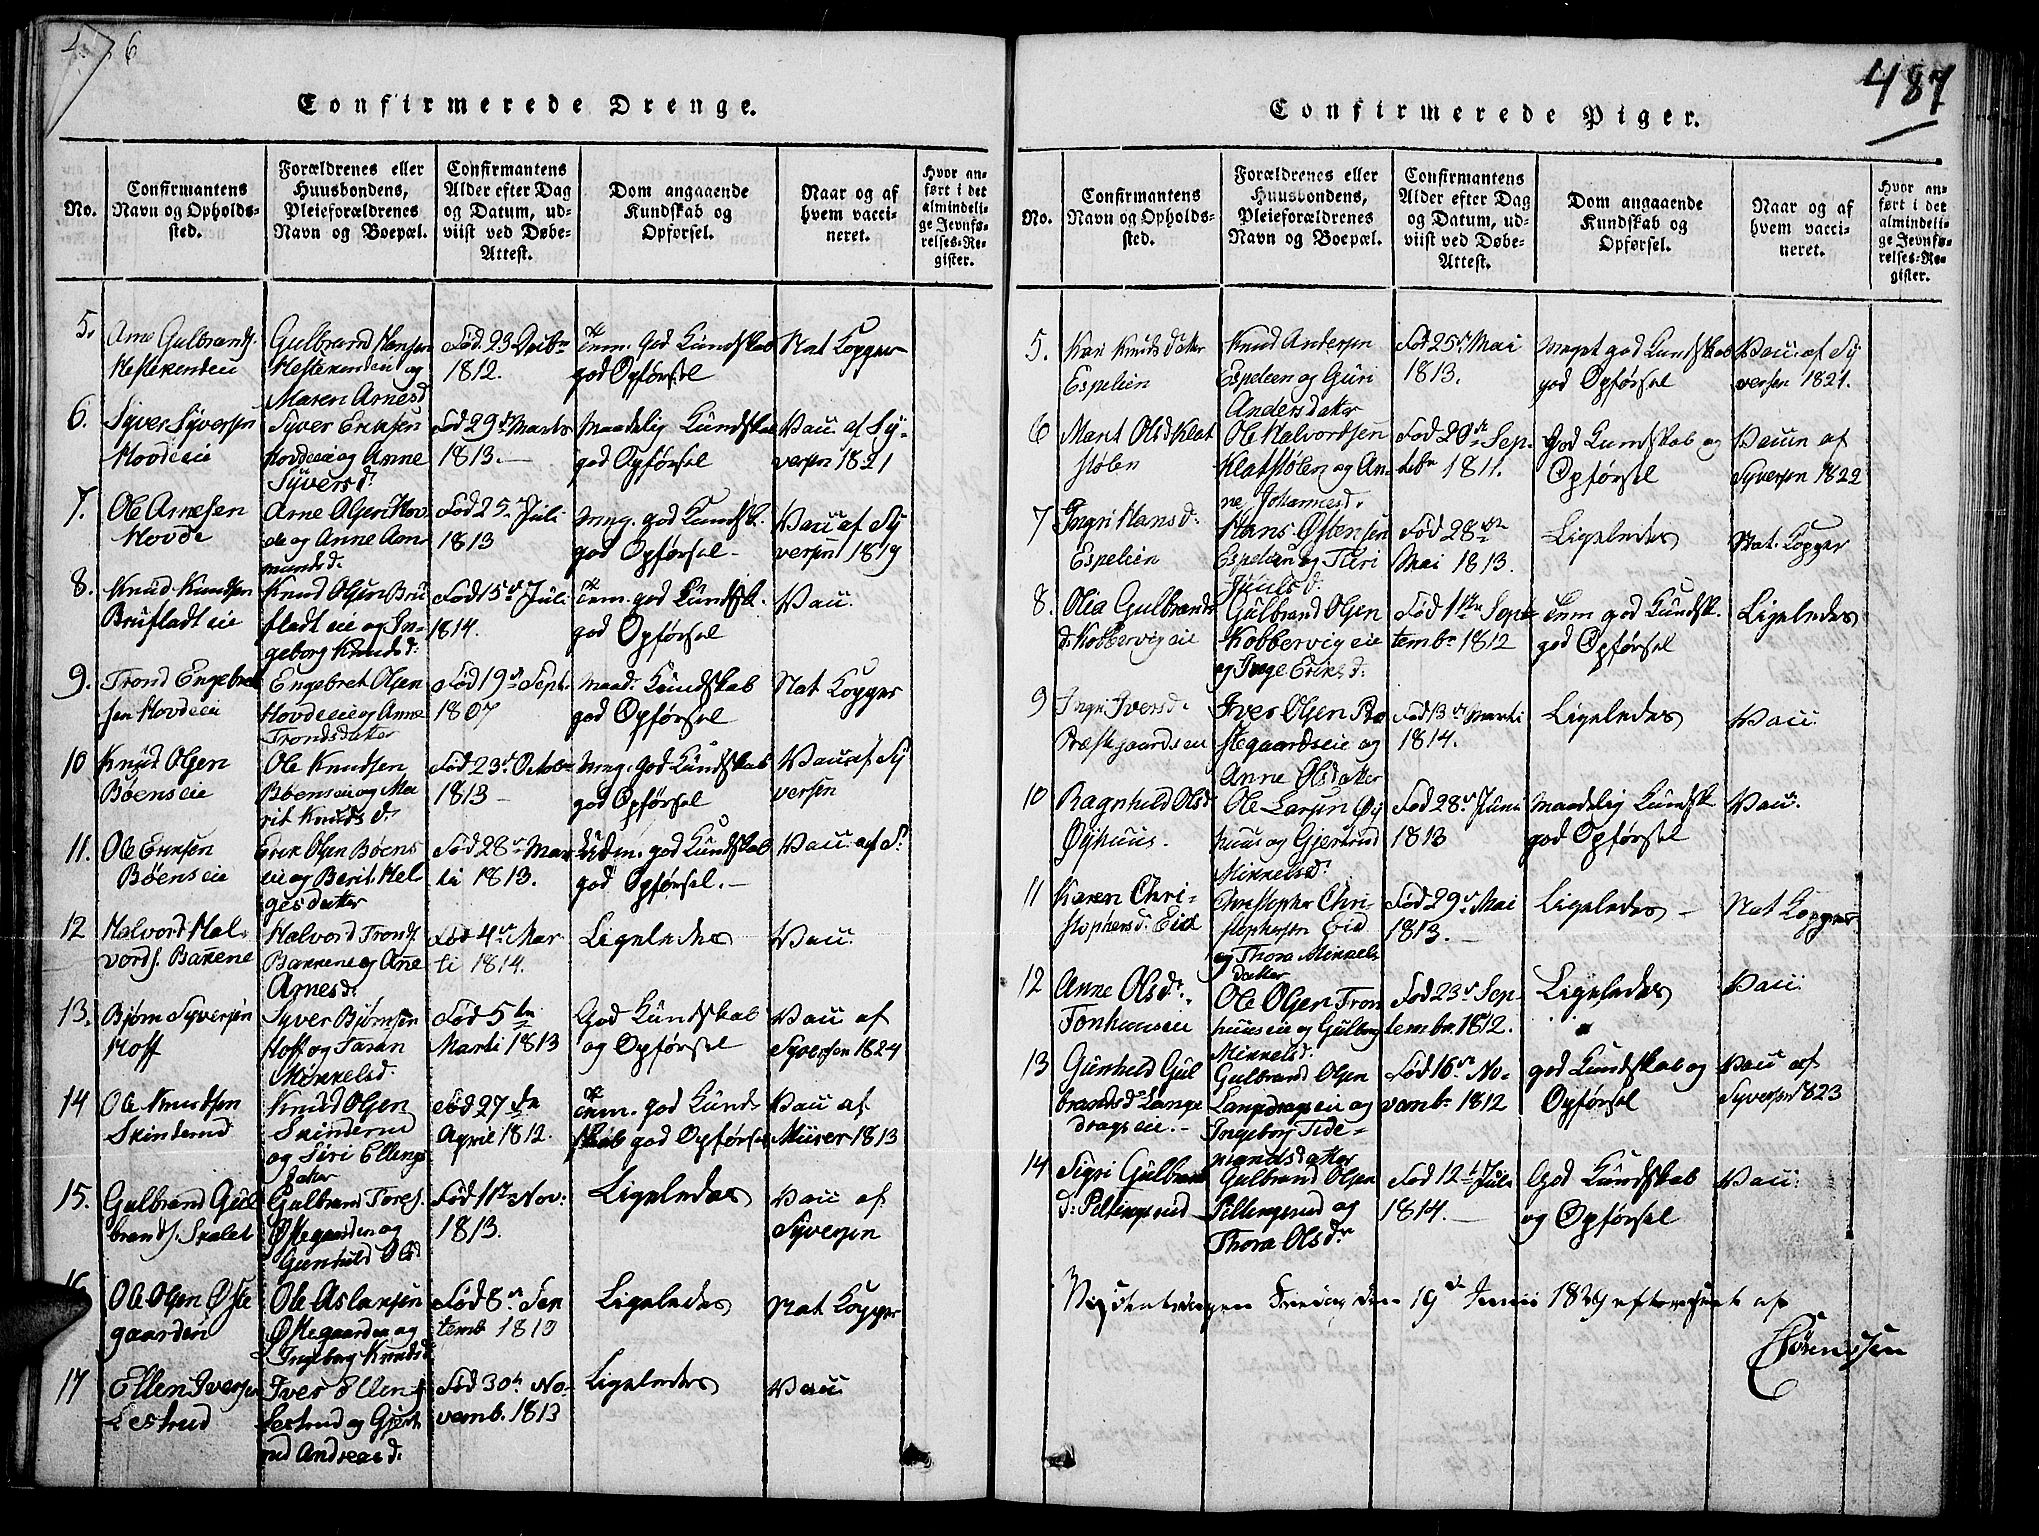 6
487
Confirmerede Drenge.
No.
Confirmantens
Navn og Opholds-
sted.
Forældrenes eller
Huusbondens,
Pleieforældrenes
Navn og Boepæl.
Confirmantens
Alder efter Dag
og Datum, ud-
viist ved Døbe-
Attest.
Dom angaaende
Kundskab og
Opførsel.
Naar og af
hvem vacci-
neret.
Hvor an-
ført i det
almindeli-
ge Jevnfø-
relses-Re-
gister.
5.
Arne Gulbrands.
Hestekendeie
Gulbrand Hansen
Hestekendeie og
Maren Arnesd
Fød 23 Decbr
1812.
Tem. god Kundskab
god Opførsel
Nat Kopper
6.
Syver Syversen
Hovdeeie
Syver Eriksen
Hovdeeie og Anne
Syversd.
Fød 29de Marts
1813.
Maadelig Kundskab
god Opførsel
Vacc. af Sy-
versen 1821
7.
Ole Arnesen
Hovde
Arne Olsen Hov
de og Anne Am-
mundsd.
Fød 25. Juli
1813
Meg. god Kundsk.
god Opførsel
Vacc af Sy
versen 1819
8.
Knud Knudsen
Brufladt eie
Knud Olsen Bru
fladt eie og In-
geborg Knudsd.
Fød 15de Juli
1814.
Tem. god Kundsk.
god Opførsel
Vacc.
9.
Trond Engebret
sen Hovdeeie
Engebret Olsen
Hovdeeie og Anne
Trondsdatter
Fød 19de Sept.
1807
Maad. Kundskab
god Opførsel
Nat Kopper
10
Knud Olsen
Bøenseie
Ole Knudsen
Bøenseie og Ma
rit Knudsd.
Fød 23de Octobr
1813
Meg. god Kundskab
god Opførsel
Vacc af Sy
versen
11.
Ole Eriksen
Bøenseie
Erik Olsen Bøens
eie og Berit Hel
gesdatter
Fød 28de Mar
ti 1813.
Udm. god Kundskab
god Opførsel.
Vacc. af S.
12
Halvord Hal-
vords. Bakkene
Halvord Tronds.
Bakkene og Ane
Agnesd.
Fød 4de Mar
ti 1814.
Ligeledes
Vacc.
13.
Bjørn Syversen
Hoff
Syver Bjørnsen
Hoff og Taran
Mikkelsd.
Fød 5te
Marti 1813
God Kundskab
og Opførsel
Vacc af
Syversen 1824
14
Ole Knudsen
Skinderud
Knud Olsen
Skinderud
og Siri Ellings
datter
Fød 27de
April 1812.
Tem. god Kund-
skab god Opførsel
Vacc af
Müser 1813
15.
Gulbrand Gul
brands. Skalet
Gulbrand Tores.
Østegaarden og
Gunhild Olsd
Fød 1te Nov.
1813.
Ligeledes
Vacc af
Syversen
16
Ole Olsen Øste
gaarden
Ole Aslaksen
Østegaarden og
Ingeborg Knudsd
Fød 8de Sep
temb 1813
Ligeledes
Nat Kopper
17
Ellen Iversen
Lestrud
Iver Ellens
Lestrud og Gjert
rud Andreasd.
Fød 30te No-
vemb. 1813
Ligeledes
Vacc
Confirmerede Piger.
No.
Confirmantens
Navn og Opholds-
sted.
Forældrenes eller
Huusbondens,
Pleieforældrenes
Navn og Boepæl.
Confirmantens
Alder efter Dag
og Datum, ud-
viist ved Døbe-
Attest.
Dom angaaende
Kundskab og
Opførsel.
Naar og af
hvem vacci-
neret.
Hvor an-
ført i det
almindeli-
ge Jevnfø-
relses-Re-
gister.
5.
Kari Knudsdatter
Espelien
Knud Andersen
Espelien og Guri
Andersdatter
Fød 25de Mai
1813.
Meget god Kundskab
god Opførsel
Vacc. af Sy
versen 1821.
6
Marit Olsd Klat
stølen
Ole Halvordsen
Klatstølen og An
ne Johannesd.
Fød 20de Sep-
tebr 1811.
God Kundskab og
Opførsel
Vaccin af
Syversen 1822
7
Ingri Hansd.
Espelien
Hans Østensen
Espelien og Turi
Juulsd.
Fød 28de
Mai 1813.
Ligeledes
Nat. Kopper
8.
Olia Gulbrands
d. Kobbervig eie
Gulbrand Olsen
Kobbervig eie
og Inge Eriksd.
Fød 1ste Sept
tembr 1812
Tem god Kundsk.
god Opførsel
Ligeledes
9
Ingri Iversd.
Præstegaardseie
Iver Olsen Præ
stegaardseie og
Anne Olsdatter
Fød 13de Marti
1814.
Ligeledes
Vacc.
10
Ragnhild Olsd
Øyhuus.
Ole Larsen Øy
huus og Gjertrud
Mikkelsd.
Fød 28de Juni
1813
Maadelig Kundsk
god Opførsel
Vacc.
11
Karen Chri-
stophersd. Eid
Christopher Chri
stophersen Eid
og Thora Mikkels
datter
Fød 29de Mai
1813.
Ligeledes
Nat Kopper
12
Anne Olsd.
Tonhuuseie
Ole Olsen Tron
huuseie og Gulbag
Mikkelsd.
Fød 23de Sep-
tembr. 1812.
Ligeledes
"
Vacc.
13
Gunhild Gul
brandsd. Lange
dragseie.
Gulbrand Olsen
Langdragseie og
Ingeborg Tide-
mandsdatter
Fød 16de No-
vembr 1812
god Kundskab og
Opførsel
Vacc af
Syversen 1823
14
Sigri Gulbrand
d. Piltingsrud
Gulbrand Olsen
Piltingsrud og
Thora Olsdr
Fød 12te Juli
1814.
God Kundskab
og Opførsel
Vacc.
19de Junii 1829 efterseet af
Sørenssen